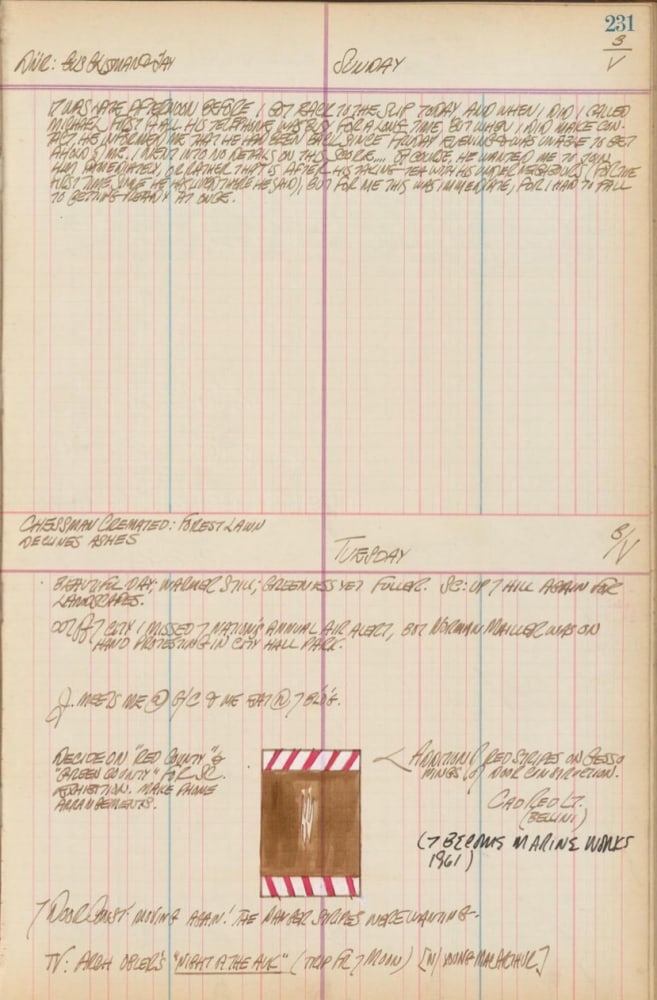 231
3/V
DNR:
SUNDAY
IT WAS LATE AFTERNOON BEFORE I GOT BACK TO THE SLIP TODAY AND WHEN I DID I CALLED
MICHAEL. FIRST OF ALL HIS TELEPHONE WAS BUSY FOR A LONG TIME, BUT WHEN I DID MAKE CON-
TACT, HE INFORMED ME THAT HE HAD BEEN BACK SINCE FRIDAY EVENING & WAS UNABLE TO GET
AHOLD OF ME. I WENT INTO NO DETAILS ON THIS SCORE.... OF COURSE, HE WANTED ME TO JOIN
HIM IMMEDIATELY, OR RATHER THAT IS AFTER HIS TAKING TEA WITH HIS UNDER NEIGHBOURS (FOR THE
FIRST TIME SINCE HE HAS LIVED THERE HE SAID), BUT FOR ME THIS WAS IMMEDIATE, FOR I HAD TO FALL
TO GETTING READY AT ONCE.
CHESSMAN CREMATED: FOREST LAWN
DECLINES ASHES
TUESDAY
3/V
BEAUTIFUL DAY; WARMER STILL; GREENNESS YET FULLER. SC: UP 7 HILL AGAIN FOR
LANDSCAPES.
OUT OF 7 CITY I MISSED 7 NATION'S ANNUAL AIR ALERT, BUT NORMAN MAILLER WAS ON
HAND PROTESTING IN CITY HALL PARK.
J. MEETS ME @ G/C & WE EAT @ 7 BLDG.
DECIDE ON "RED COUNTY" &
"GREEN COUNTY" FOR SC.
EXHIBITION. MAKE PHONE
ARRANGEMENTS.
ADDITION OF RED STRIPES ON GESSO
DOOR CONSTRUCTION.
CAD RED LT.
(BELLINI)
(7 BECOMES MARINE WORKS
1961)
7 DOOR CONST. MOVING AGAIN! THE DANGER STRIPES WERE WANTING.
TV: ARCH OBLER'S "NIGHT OF THE AUK" (TRIP FR 7 MOON) [W/ YOUNG MACARTHUR]